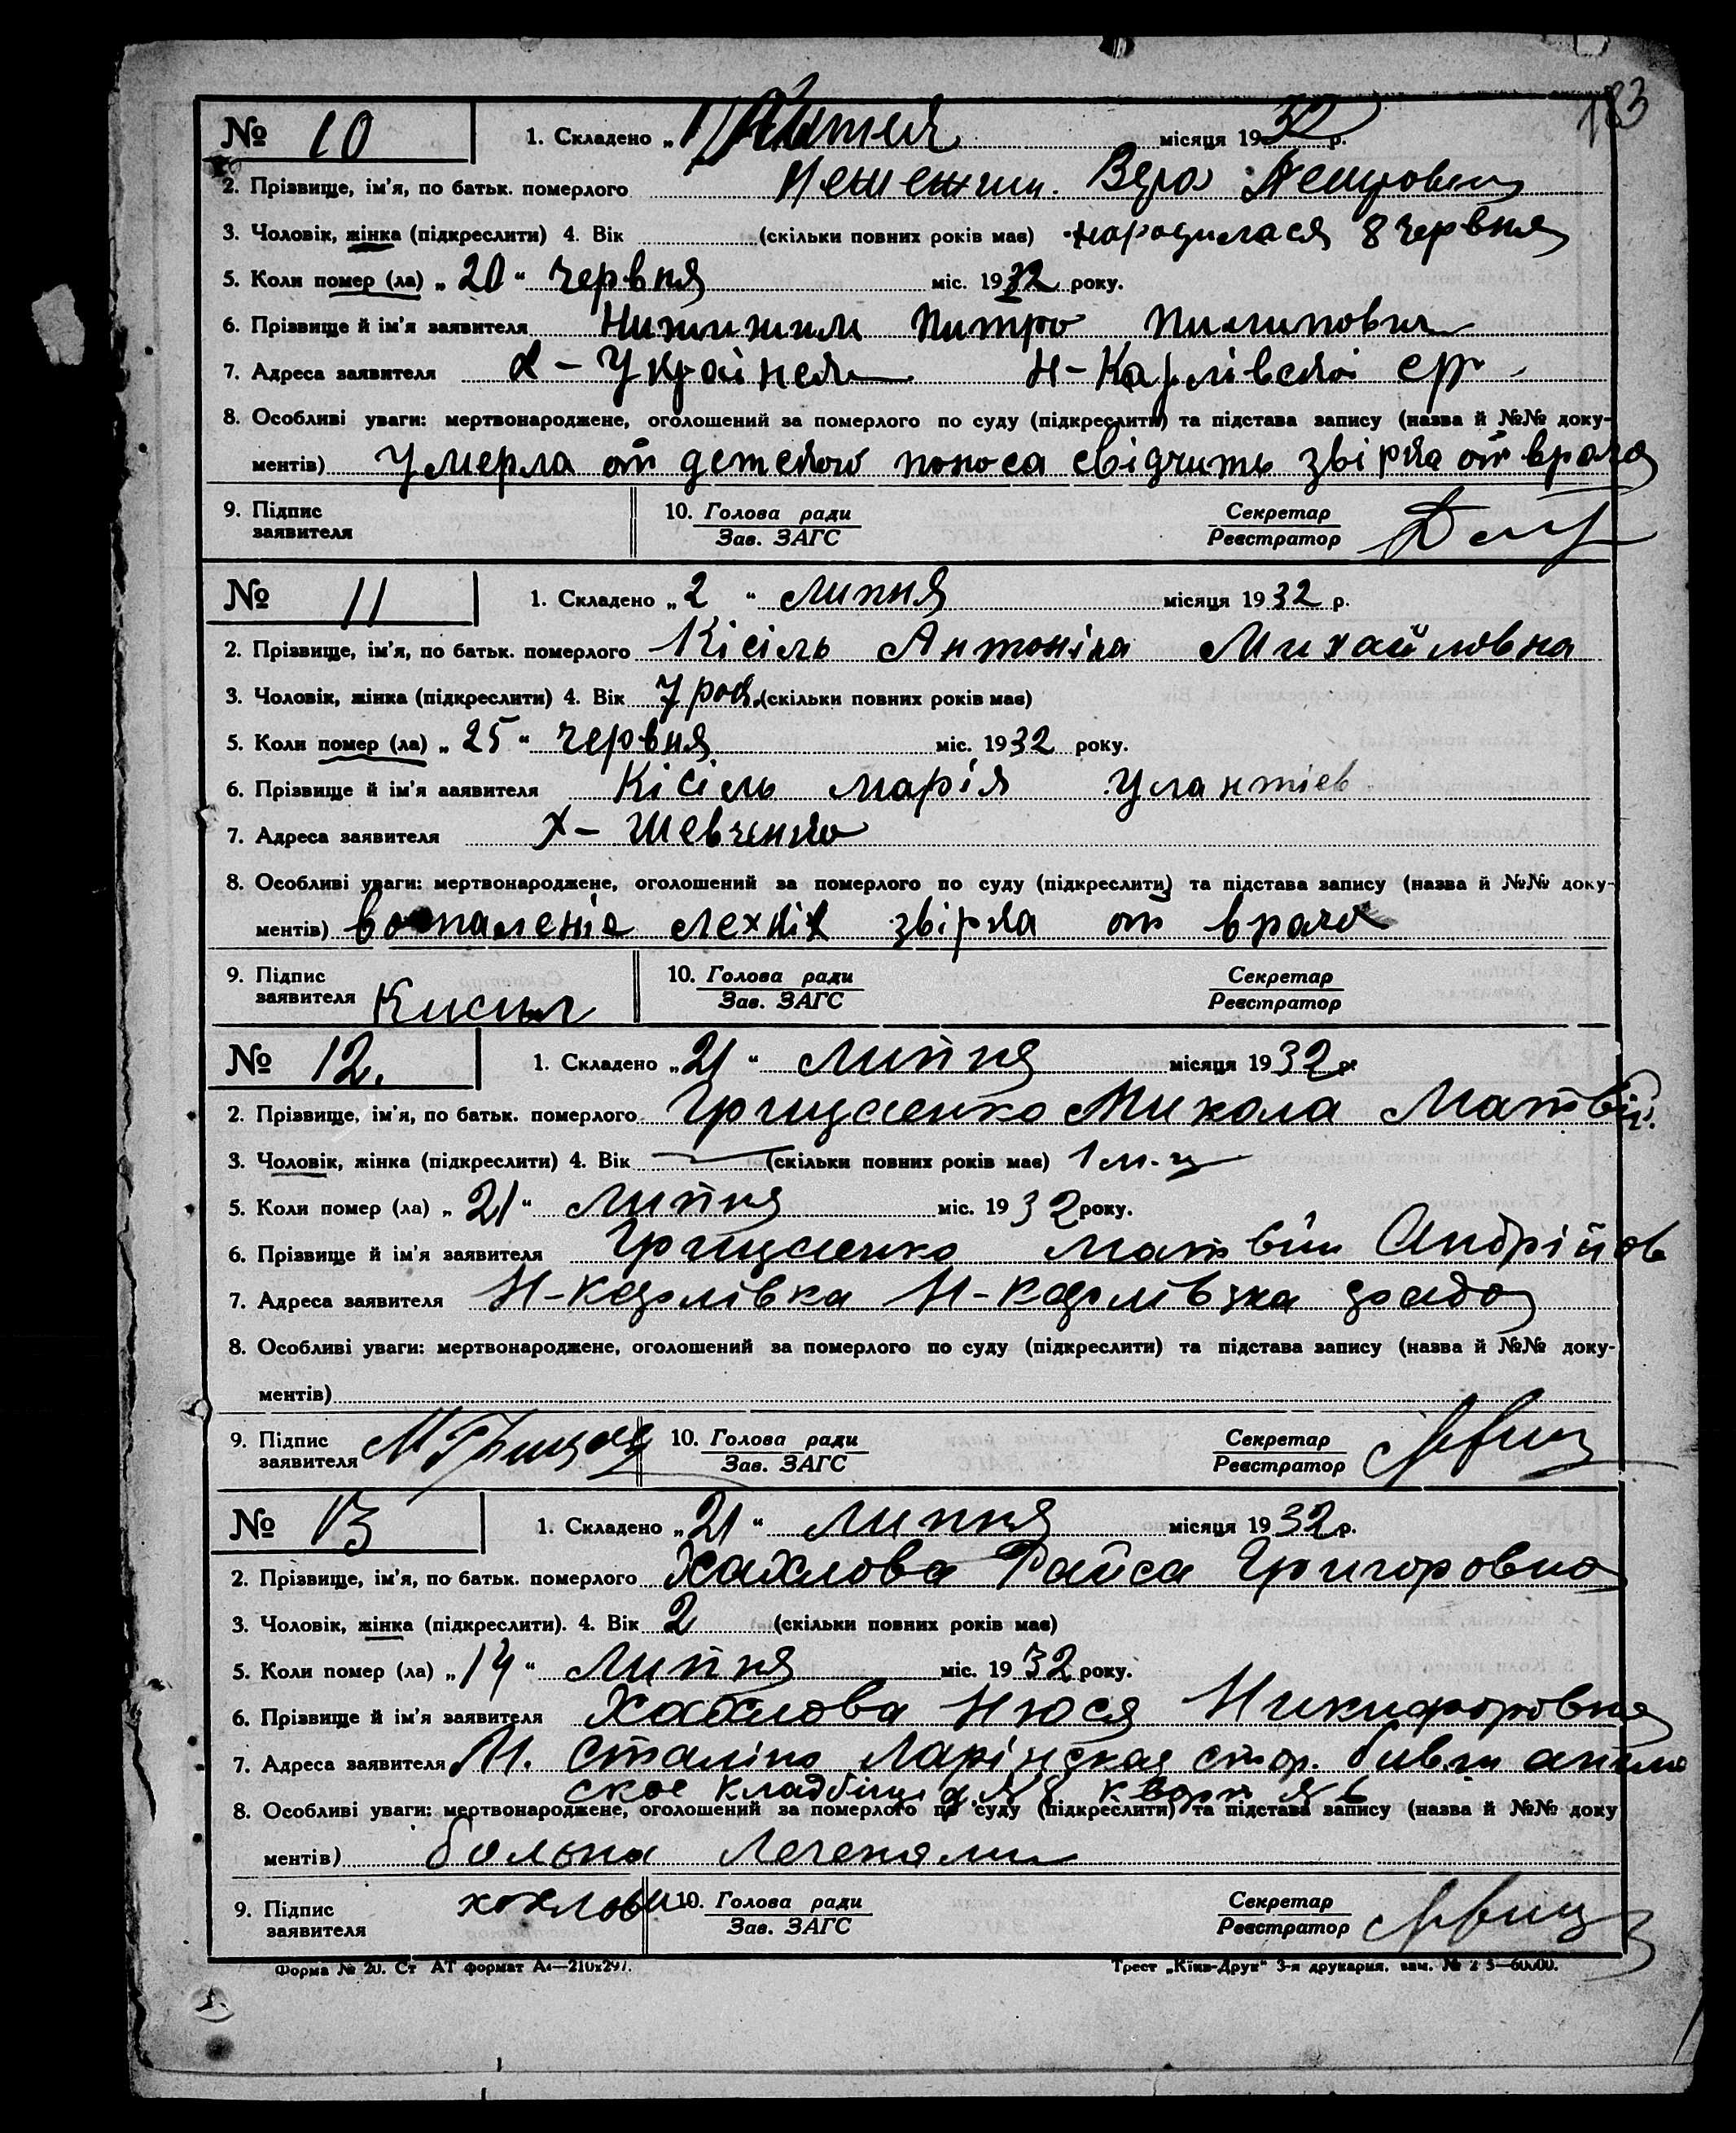 183
№ 10 1. Складено „1" липня місяця 1932 р.
2. Прізвище, ім'я, по батьк. померлого Вера Петровна
3. Чоловік, жінка (підкреслити) 4. Вік (скільки повних років має) народилася 8 червня
5. Коли помер (ла) „20" червня міс. 1932 року.
6. Прізвище й ім'я заявителя Нижижим Питро Пилипович
7. Адреса заявителя х – Українея Н-Карлівскої ср.
8. Особливі уваги: мертвонароджене, оголошений за померлого по суду (підкреслити) та підстава запису (назва й №№ доку-
ментів) умерла от детскої поноса свідчить звірка от врача
9. Підпис заявителя 10. Голова ради Зав. ЗАГС Секретар Реєстратор
№ 11 1. Складено „2" липня місяця 1932 р.
2. Прізвище, ім'я, по батьк. померлого Кісіль Антоніна Михайловна
3. Чоловік, жінка (підкреслити) 4. Вік 7 рок. (скільки повних років має)
5. Коли помер (ла) „25" червня міс. 1932 року.
6. Прізвище й ім'я заявителя Кісіль марія Улантіев
7. Адреса заявителя х – Шевченко
8. Особливі уваги: мертвонароджене, оголошений за померлого по суду (підкреслити) та підстава запису (назва й №№ доку-
ментів) воспаленіе лехкіх звірка от врача
9. Підпис заявителя Кисил 10. Голова ради Зав. ЗАГС Секретар Реєстратор
№ 12. 1. Складено „21" липня місяця 1932 р.
2. Прізвище, ім'я, по батьк. померлого Грицаенко Микола Матвій.
3. Чоловік, жінка (підкреслити) 4. Вік — (скільки повних років має) 1 м-ц
5. Коли помер (ла) „21" липня міс. 1932 року.
6. Прізвище й ім'я заявителя Грицаенко Матвій Андрійов
7. Адреса заявителя Н-Карлівка Н-Карлівска рада
8. Особливі уваги: мертвонароджене, оголошений за померлого по суду (підкреслити) та підстава запису (назва й №№ доку-
ментів)
9. Підпис заявителя М Грицае 10. Голова ради Зав. ЗАГС Секретар Реєстратор
№ 13 1. Складено „21" липня місяця 1932 р.
2. Прізвище, ім'я, по батьк. померлого Хахлова Раиса Григоровна
3. Чоловік, жінка (підкреслити). 4. Вік 2 (скільки повних років має)
5. Коли помер (ла) „14" липня міс. 1932 року.
6. Прізвище й ім'я заявителя Хахлова Нюся Никифоровна
7. Адреса заявителя М. Сталіно Ларінская стор. бивш англи
ское кладбіще д. № 8 кварт № 6
8. Особливі уваги: мертвонароджене, оголошений за померлого по суду (підкреслити) та підстава запису (назва й №№ доку
ментів) больна легенями
9. Підпис заявителя хохлова 10. Голова ради Зав. ЗАГС Секретар Реєстратор
Форма № 20. Ст АТ формат А4—210х297. Трест „Київ-Друк" 3-я друкарня.